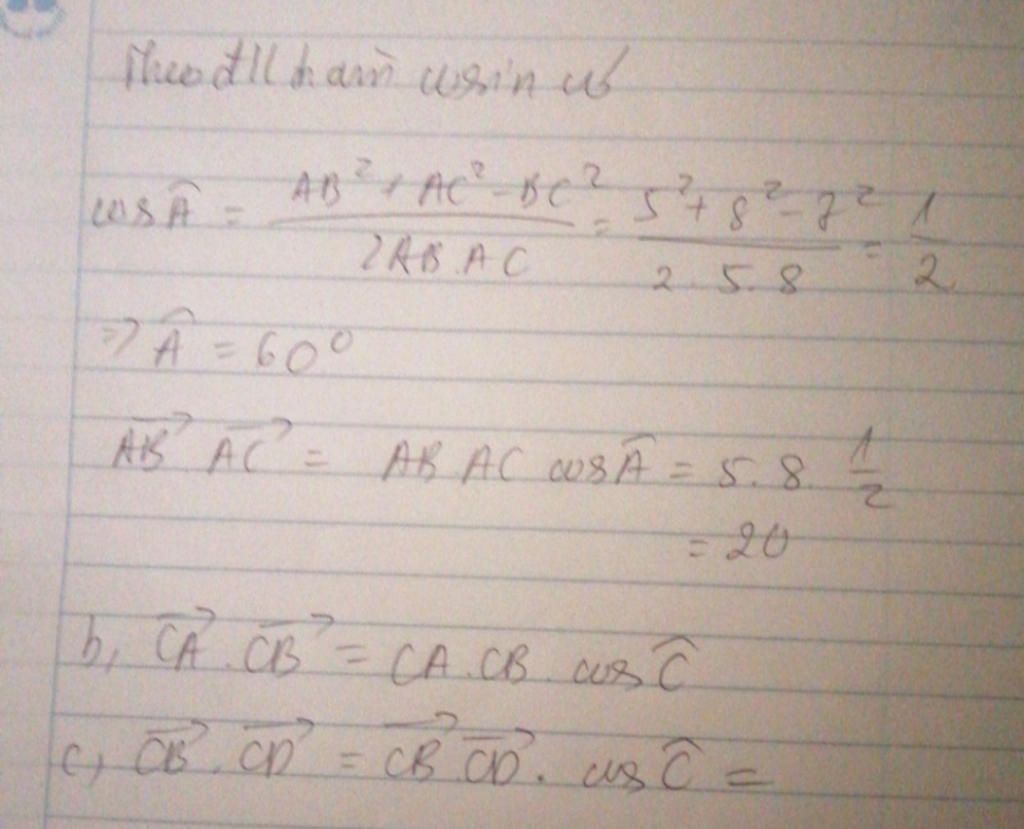 Theo đll hàm cosin có
cos Â = AB² + AC² - BC² / 2AB.AC = 5² + 8² - 7² / 2.5.8 = 1/2
=> Â = 60⁰
AB⃗ AC⃗ = AB AC cos Â = 5.8. 1/2
= 20
b, CA⃗ . CB⃗ = CA.CB. cos Ĉ
c, CB⃗ . CD⃗ = CB⃗ CD⃗ . cos Ĉ =